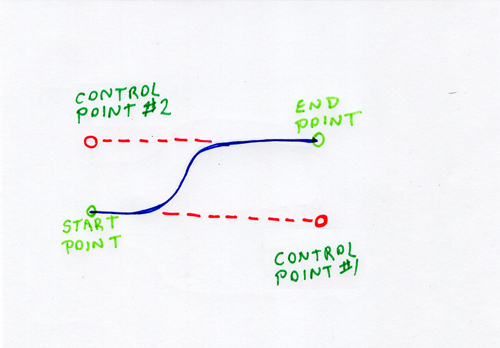 CONTROL
POINT #2
END
POINT
START
POINT
CONTROL
POINT #1